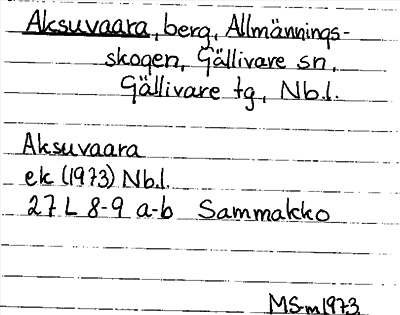 Aksuvaara, berg, Allmännings-
skogen, Gällivare sn,
Gällivare tg, Nb.l.
Aksuvaara
ek (1973) Nb.l.
27 L 8-9 a-b Sammakko
MS-m1973